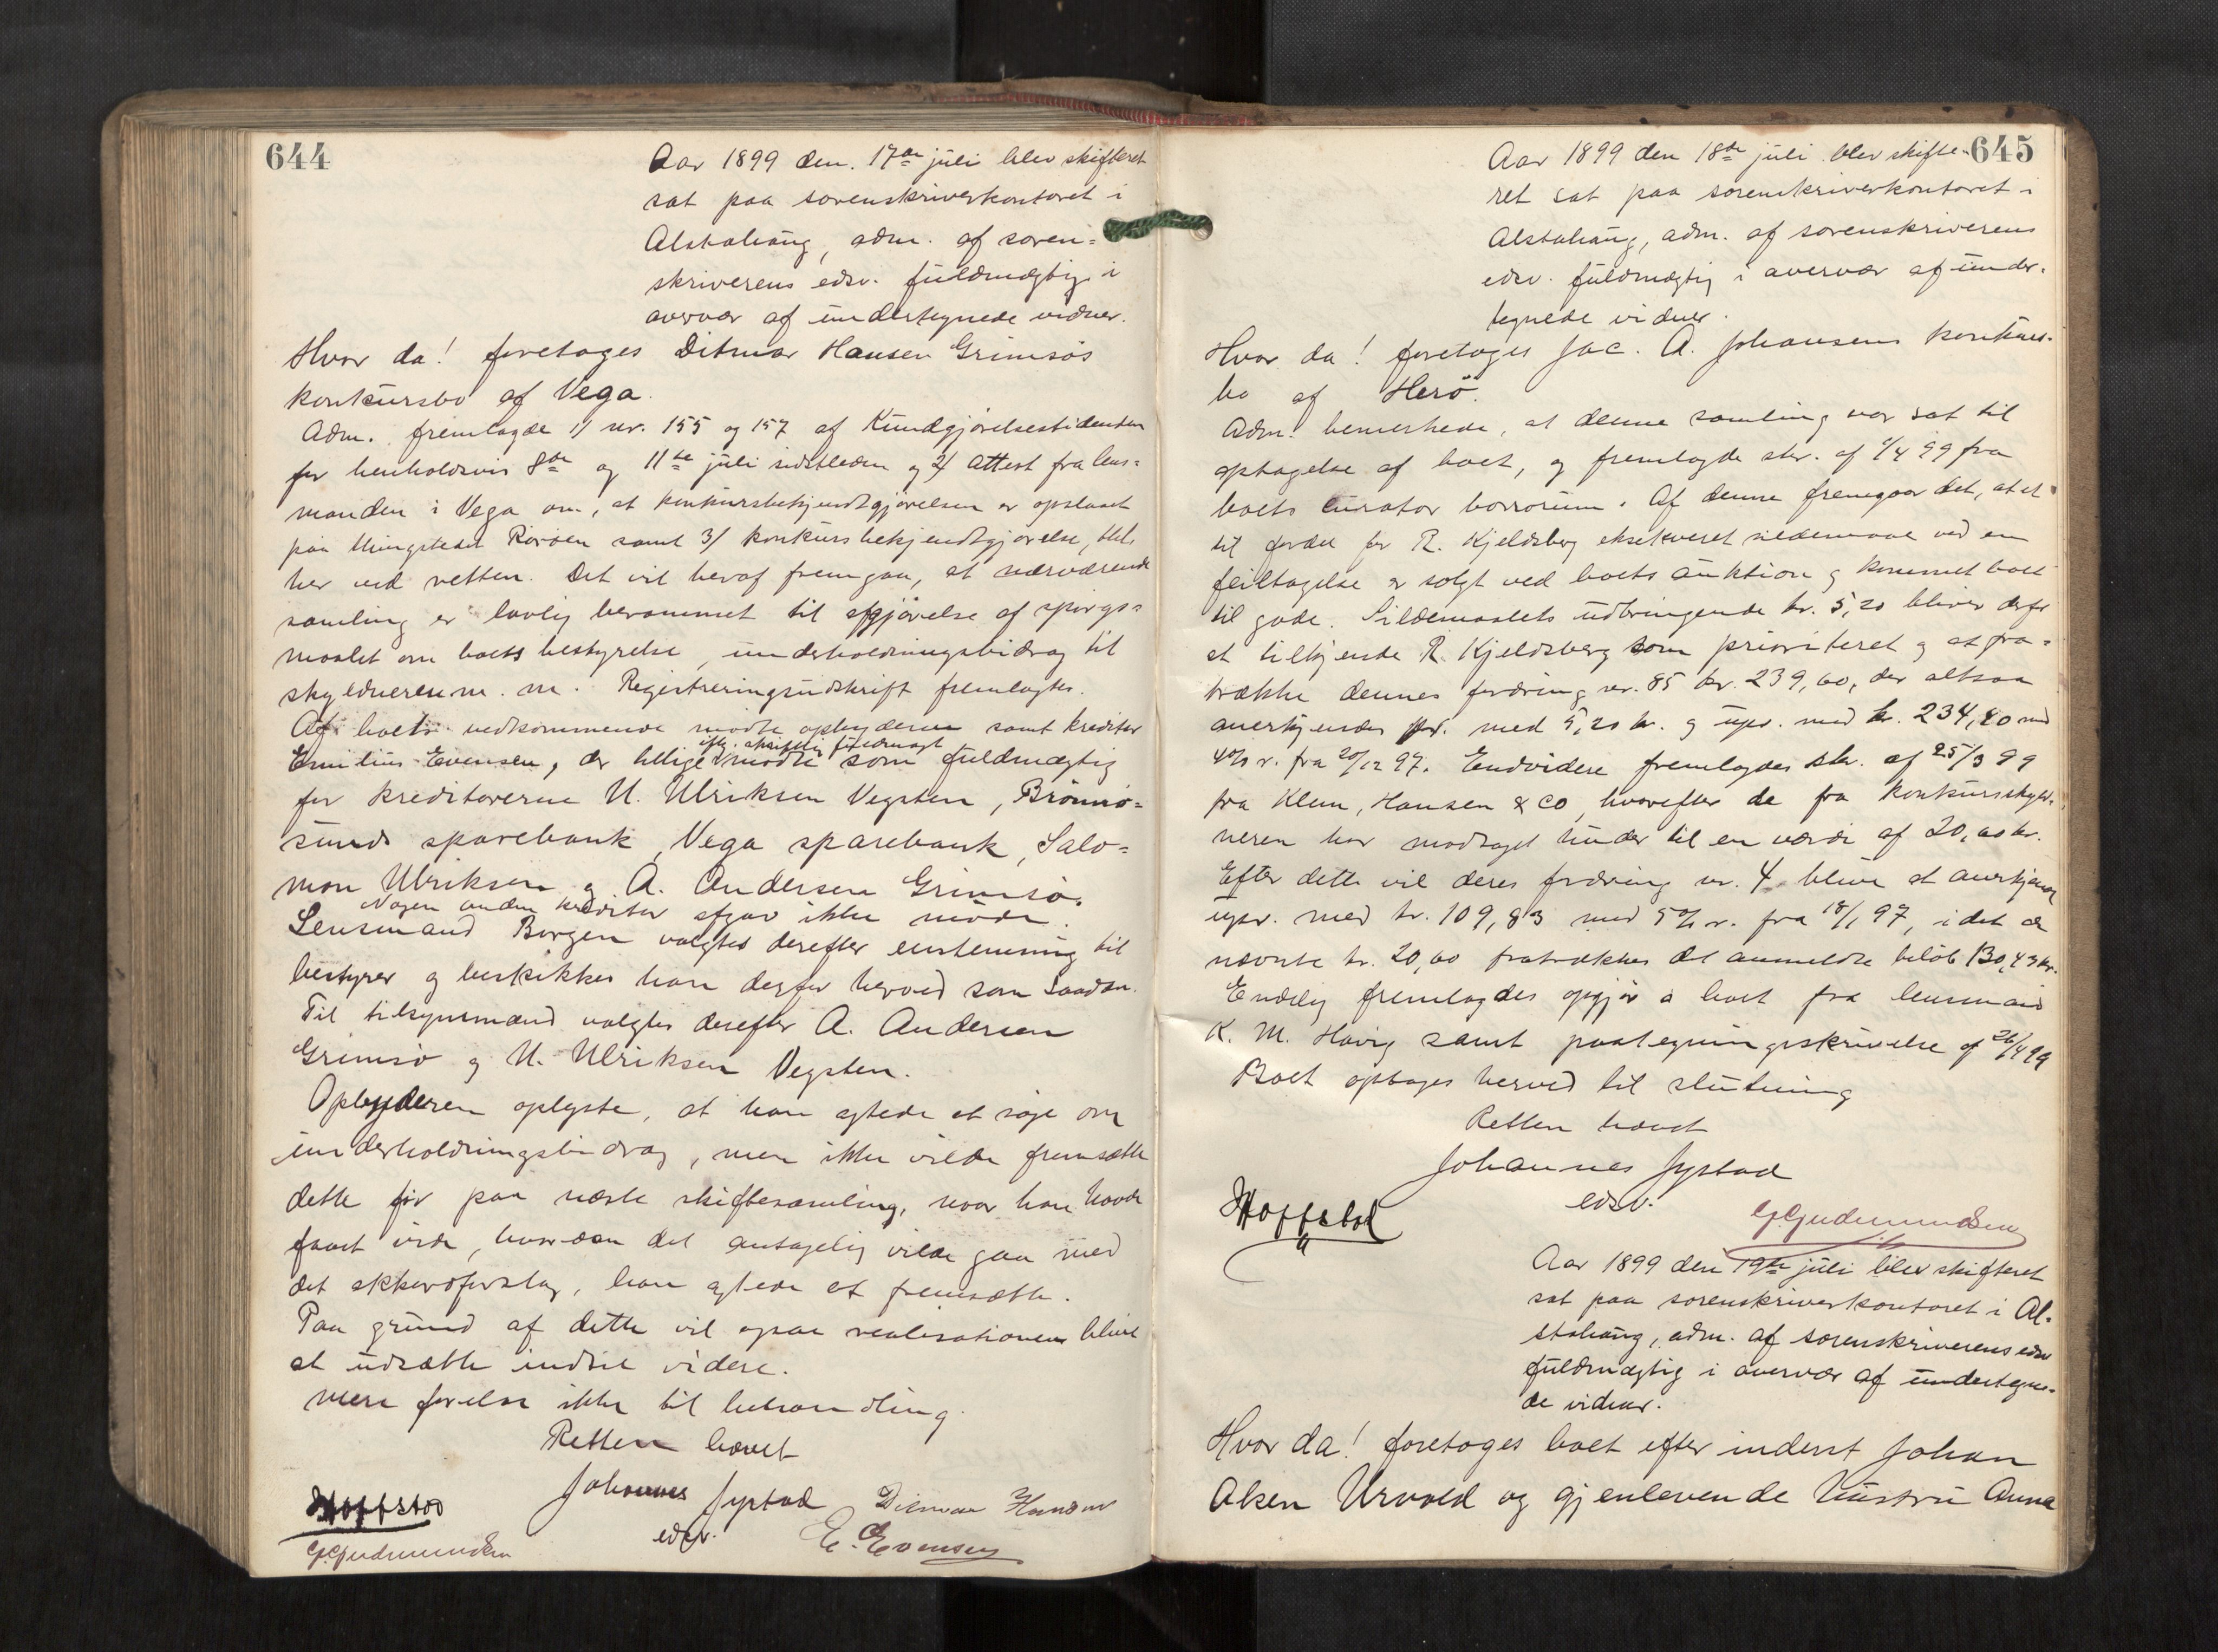 644
Aar 1899 den. 17de juli blev skifteret
sat paa sorenskriverkontoret i
Alstahaug, adm. af soren=
skriverens edsv. fuldmægtig i
overvær af undertegnede vidner.
Hvor da! foretages Ditmar Hansen Grimsøs
konkursbo af Vega.
Adm. fremlagde 1/ nr. 155 og 157 af Kundgjørelsestidenden
for henholdsvis 8de og 11te juli sidstleden og 2/ Attest fra lens=
manden i Vega om, at konkursbekjendtgjørelsen er opslaaet
paa thingstedet Rørøen samt 3/ konkursbekjendtgjørelse,
her ved retten. Det vil heraf fremgaa, at nærværende
samling er lovlig berammet til afgjørelse af spørgs=
maalet om boets bestyrelse, underholdningsbidrag til
skyldneren m. m. Registreringsudskrift fremlagtes.
Af boets vedkommende mødte opbyderen samt kreditor
Emilius Evensen, der tillige iflg. skriftlig fuldmagt mødte som fuldmægtig
for kreditorerne U. Ulriksen Vegsten, Brønnø=
sunds sparebank, Vega sparebank, Salo=
mon Ulriksen og A. Andersen Grimsø.
Nogen anden kreditor afgav ikke møde.
Lensmand Borgen valgtes derefter enstemmig til
bestyrer og beskikkes han derfor herved som saadan.
Til tilsynsmænd valgtes derefter A. Andersen
Grimsø og U. Ulriksen Vegsten.
Opbyderen oplyste, at han agtede at søge om
underholdningsbidrag, men ikke vilde fremsætte
dette før paa næste skiftesamling, naar han havde
faaet vide, hvordan det antagelig vilde gaa med
det akkordforslag, han agtede at fremsætte.
Paa grund af dette vil ogsaa realisationen blive
at udsætte indtil videre.
Mere forelaa ikke til behandling.
Retten hævet
Johannes Jystad
edsv.
Ditmar Hansen
E. Evensen
Hoffstad
G. Gudmundsen
645
Aar 1899 den 18de juli blev skifte-
ret sat paa sorenskriverkontoret i
Alstahaug, adm. af sorenskriverens
edsv. fuldmægtig i overvær af under-
tegnede vidner.
Hvor da! foretages Jac. A. Johansens konkurs-
bo af Herö.
Adm. bemerkede, at denne samling var sat til
optagelse af boet, og fremlagde skr. af /4 99 fra
boets curator bonorum. Af denne fremgaar det, at et
til fordel for R. Kjeldsberg eksekveret sildemaal ved en
feiltagelse er solgt ved boets auktion og kommet boet
til gode. Sildemaalets udbringende kr. 5,20 bliver derfor
at tilkjende R. Kjeldsberg som prioriteret og at fra=
trække dennes fordring nr. 85 kr. 239,60, der altsaa
anerkjendes med 5,20 kr. og upr. med kr. 234,40 med
4% r. fra 20/12 97. Endvidere fremlagdes skr. af 25/3 99
fra Klem, Hansen & Co, hvorefter de fra konkursskyld-
neren har modtaget tønder til en værdi af 20,60 kr.
Efter dette vil deres fordring nr. 4 blive at anerkjende
upr. med kr. 109,83 med 5% r. fra 18/1 97, idet de
nævnte kr. 20,60 fratrækkes det anmeldte beløb 130,43 kr.
Endelig fremlagdes opgjør a boet fra lensmand
K. M. Havig samt paategningsskrivelse af 26/4 99
Boet optages herved til slutning
Retten hævet
Johannes Jystad
edsv.
Hoffstad
G. Gudmundsen
Aar 1899 den 19de juli blev skifteret
sat paa sorenskriverkontoret i Al-
stahaug, adm. af sorenskriverens edsv
fuldmægtig i overvær af undertegne-
de vidner.
Hvor da! foretages boet efter inderst Johan
Olsen Urvold og gjenlevende hustru Anna